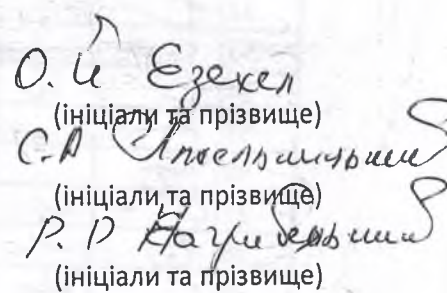 О. Й Езекел
(ініціали та прізвище)
С.А
(ініціали та прізвище)
Р. D
(ініціали та прізвище)